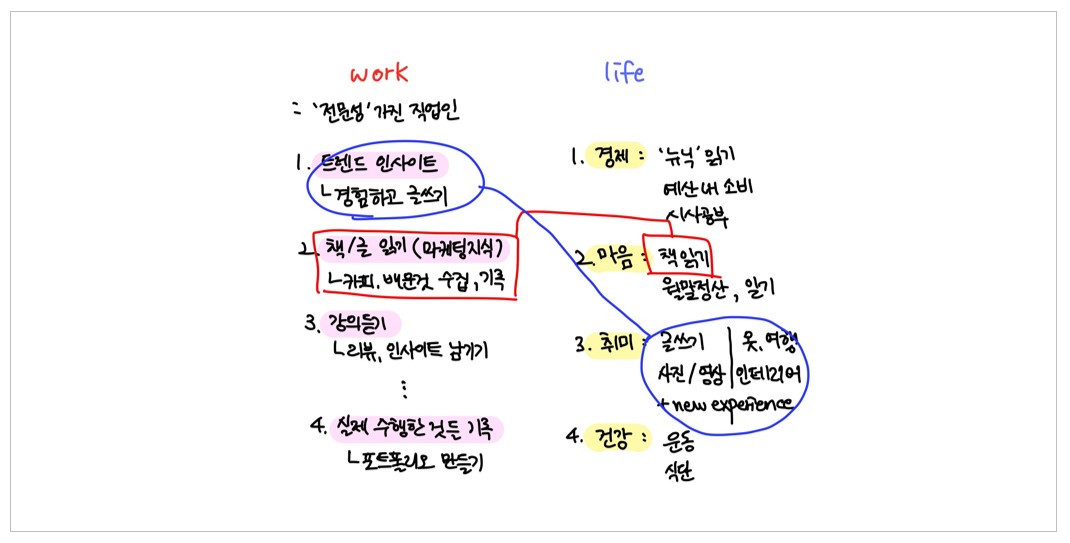 work
= '전문성' 가진 직업인
1. 트렌드 인사이트
ㄴ경험하고 글쓰기
2. 책/글 읽기 (마케팅지식)
ㄴ카피, 배운것 수집, 기록
3. 강의듣기
ㄴ리뷰, 인사이트 남기기
⋮
4. 실제 수행한 것든 기록
ㄴ포트폴리오 만들기
life
1. 경제 : '뉴닉' 읽기
예산 내 소비
시사공부
2. 마음 : 책 읽기
월말정산, 일기
3. 취미 : 글쓰기 | 옷, 여행
사진/영상 | 인테리어
+ new experience
4. 건강 : 운동
식단